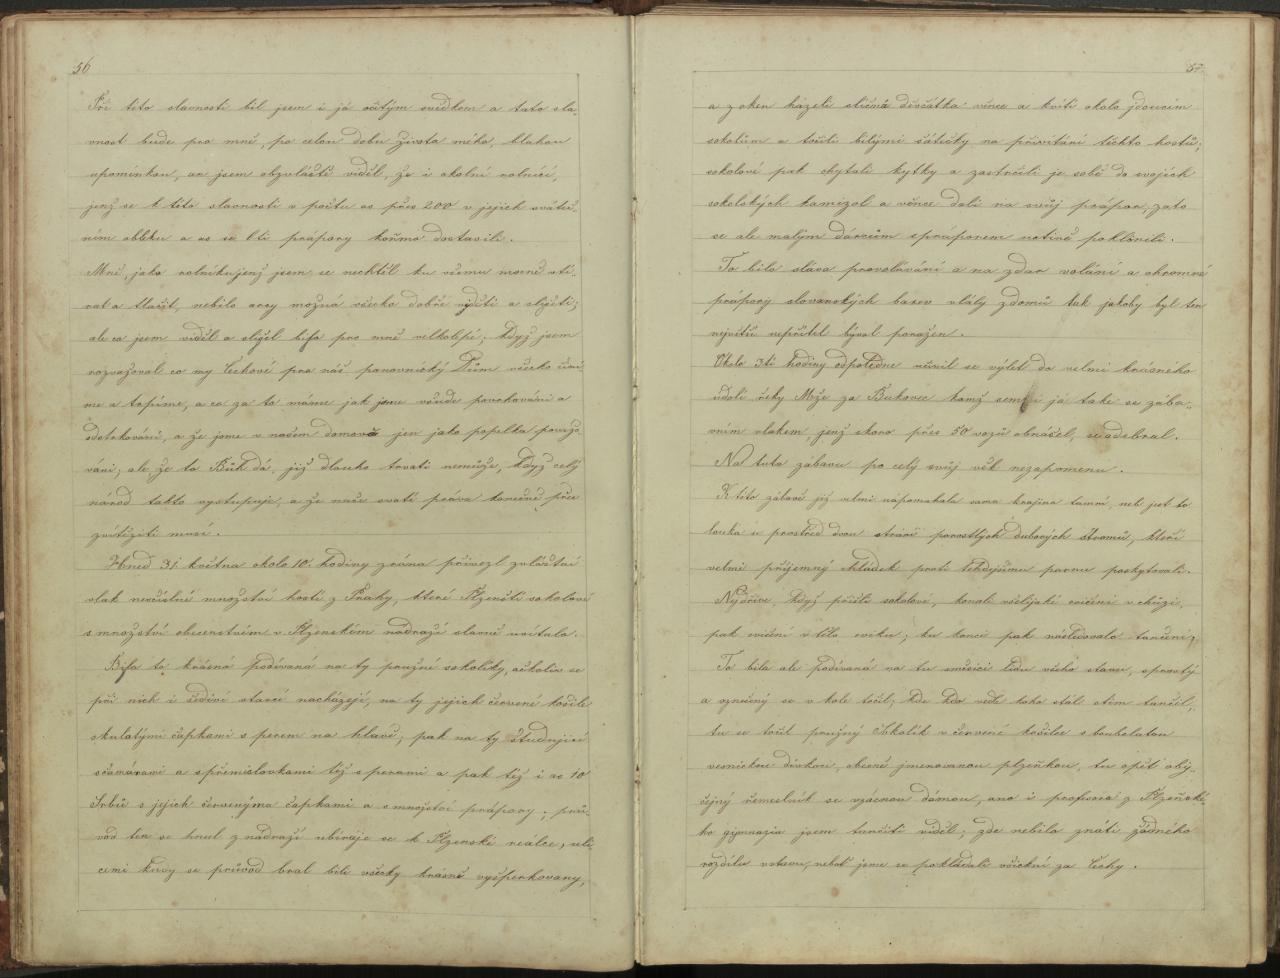 56
Při této slavnosti bil jsem i já očitým svědkem a tato sla-
vnost bude pro mně, po celou dobu života mého, blahou
upomínkou, an jsem obzvláště viděl, že i okolní rolníci,
jenž se k této slavnosti v počtu as přes 200 v jejich sváteč-
ním obleku a as se 6ti prápory koňmo dostavili.
Mně, jako rolníku jenž jsem se nechtěl ku všemu mocně otí-
rat a tlačit, nebilo arcy možná všecko dobře viděti a slyšeti;
ale co jsem viděl a slyšel bilo pro mně velkolepé; když jsem
rozvažoval co my Čechové pro náš panovnický Dům všecko čini-
me a trpíme, a co za to máme jak jsme všude pronásledováni a
odstrkováni, a že jsme v našem domově jen jako popelka považo-
váni; ale, že to Bůh dá, již dlouho trvati nemůže, když celý
národ takto vystupuje, a že naše svatá práva konečně přec
zvítěziti musí.
Hned 31. května okolo 10. hodiny zrána přivezl zvláštní
vlak nesčíslné množství hostí z Prahy, které Plzenští sokolové
s množství obecenstvem v Plzenském nádraží slavně uvítala.
Bilo to krásná podívaná na ty pružné sokolíky, ačkoliv se
při nich i šediví starci nacházejí, na ty jejich červené košile
s kulatými čapkami s perem na hlavě; pak na ty študující
v čamárami a s přemislovkami též s perami a pak též i as 10
Srbů s jejich červenýma čapkami a s množství prápory; prů-
vod ten se hnul z nádraží ubíraje se k Plzenské realce, uli-
cemi kudy se průvod bral bili všecky krásně vyšperkovany,
57
a z oken házeli sličná děvčátka věnce a kvítí okolo jdoucím
sokolům a točili bílými šátečky na přivítání těchto hostů;
sokolové pak chytali kytky a zastrčili je sobě do svojich
sokolských kamizol a věnce dali na svůj prápor, zato
se ale malým dárcům s práporem uctivě poklonili.
To bilo sláva provolávání a na zdar volání a ohromné
prápory slovanských barev vlály z domů tak jakoby byl ten
největší nepřítel býval poražen.
Okolo 3tí hodiny odpoledne učinil se výlet do velmi krásného
údolí řeky Mže za Bukovec kamž sem i já také se zába-
vním vlakem, jenž skoro přes 50 vozů obnášel, se odebral.
Na tuto zábavu po celý svůj věk nezapomenu.
K této zábavě již velmi nápomahala sama krajina tamní, neb jest to
louka u prostřed dvou strání porostlých dubových stromů, kteří
velmi příjemný chládek proti tehdejšímu parnu poskytovali.
Nejdříve, když přišli sokolové, konali všelijaké cvičení v chůzi,
pak cvičení v tělo cviku; ku konci pak následovalo tančení;
To bila ale podívaná na tu směsici lidu všeho stavu, sprostý
a vznešený se v kole točil; kde kdo vedle koho stál s tím tančil,
tu se točil pružný Sokolík v červené košilce s boubelatou
vesnickou dívkou, obecně jmenovanou plzeňkou, tu opět oby-
čejný řemeslník se vzácnou dámou, ano i professora z Plzeňské-
ho gymnasia jsem tančiti viděl; zde nebilo znáti žádného
rozdílu vstavu, neboť jsme se pokládali všickni za Čechy.